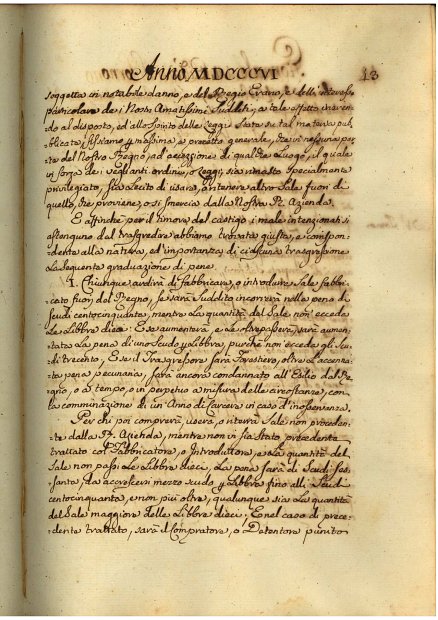 Anno MDCCCVI
13
soggetta in notabile danno, e del Regio Erario, e dell'interesse
particolare de i Nostri Amatissimi Sudditi, a tale effetto inerendo
do al disposto, ed allo spirito delle Leggi state su tal materia pub
blicate; fissiamo p massima, e precetto generale, che in nessuna par
te del Nostro Regno, ad eccezzione di qualche Luogo, il quale
in forza de i veglianti ordini, o Leggi, sia rimasto specialmente
privilegiato, sia lecito di usare, o tenere altro Sale fuori di
quello, che proviene, o si smercia dalla Nostra R. Azienda.
E affinche per il timore del castigo i male intenzionati si
astenghino dal trasgredire abbiamo trovata giusta, e corispon
dente alla natura, ed importanza di ciascuna trasgressione
la seguente graduazione di pene.
I. Chiunque ardirà di fabbricare, o introdurre Sale fabbri
cato fuori del Regno, se sarà Suddito incorrerà nella pena di
scudi centocinquanta, mentre la quantità del Sale non ecceda
le Libbre dieci: E se aumenterà, e le oltrepasserà, sarà aumen
tata la pena di uno Scudo p Libbra, purchè non ecceda gli Scu
di trecento, E se il Trasgressore sarà Forestiero, oltre l'accenna
ta pena pecuniaria, sarà ancora condannato all'Esilio dal Re
gno, o a tempo, o in perpetuo a misura delle circostanze, con
la comminazione di un Anno di Carcere in caso d'inosservanza.
Per chi poi comprerà, userà, o riterrà Sale non proceden
te dalla R. Azienda, mentre non vi sia stato precedente
trattato col Fabbricatore, o Introduttore, e la quantità del
Sale non passi le Libbre dieci, la pena sarà di Scudi ses
santa, da accrescersi mezzo scudo p Libbra fino alli Scudi
centocinquanta, e non più oltre, qualunque sia la quantità
del Sale maggiore delle Libbre dieci: E nel caso di prece
dente trattato, sarà il Compratore, o Detentore punito